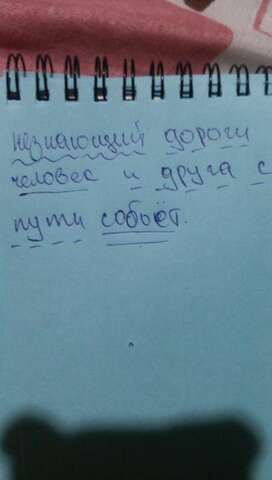 незнающий дороги
человек и друга с
пути собьёт.